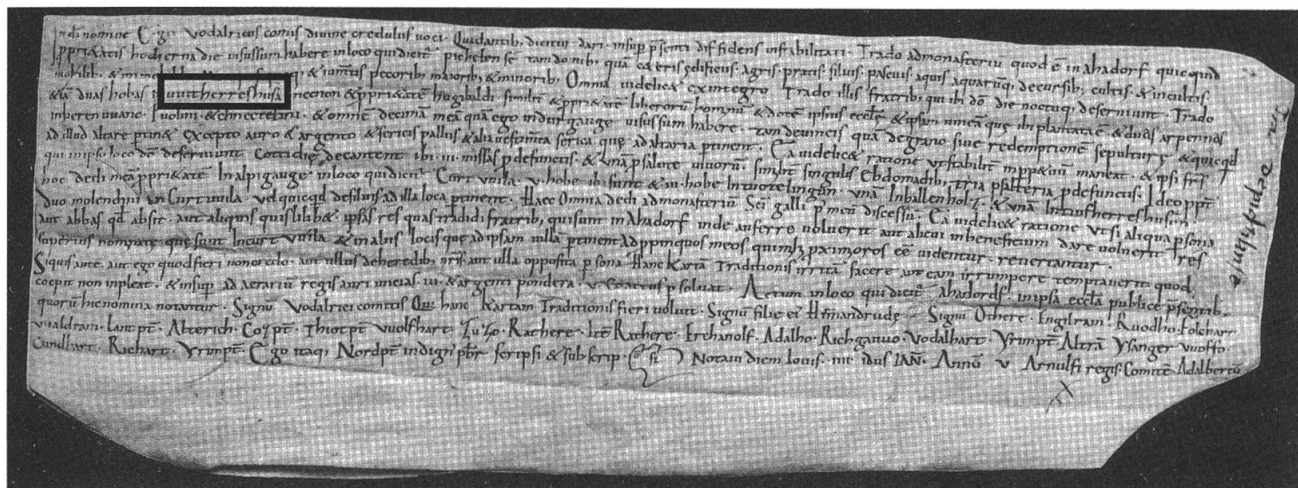 In dei nomine. Ego Vodalricus comis divine credulus voci. Quidantib; dicitur. dari. insup psenti diffidens instabilitati. Trado ad monasteriu quod e in ahadorf quicquid
pprietatis hodierna die visus sum habere in loco qui dicit. picheben se tam domib; qua ceteris edificiis. agris. pratis. silvis. pascuis. aquis aquaruq; decursib; cultis. & incultis
mobilib; & & iumtis pecorib; maiorib; & minorib; Omnia videlic& ex integro Trado illis fratrib; qui ibi do die noctuq; deserviunt. Trado
&ia duas hobas wittherreshusa necnon & ppri&ate hugibaldi. similit & ppri&ate liberoru hominu. & dote ipsius eccle & ipsam vinea que ibi plantata e. & duas arpennas
in perenuuanc & omne decima mea qua ego in durgauge visus sum habere. tam de vineis qua de grano. sive redemptione sepulture & quicqd
ad illud altare ptin& excepto auro & argento & sericis palliis & alia vestimta serica que ad altaria ptinent. Ea videlic& ratione ut stabilit mppetuu maneat. & ipsi frs
qui in ipso loco do deserviunt. Cottidie decantent ibi. iii. missas p defunctis. & una p salute vivoru. similit singulis ebdomadib; tria psalteria p defunctis. Ideo
hoc dedi mea ppri&ate In alpigauge in loco qui dicit. Curt vuila. v. hobe ibi sunt & in. hobe una Inballenholz. & una
duo molendini in Curt vuila. vel quicqd de silvis ad illa loca ptinent. Haec omnia dedi ad monasteriu Sci galli p meu discessu. Ea videlic& ratione ut si aliqua psona
aut abbas qd absit. aut aliquis quislib& ipsas res quas tradidi fratrib; qui sunt in ahadorf inde auferre voluerit aut alicui in beneficium dare voluerit res
superius nominate que sunt In curt vuila & in aliis locis que ad ipsam villa ptinent Ad ppinquos meos qui mihi pximores ee videntur. revertantur.
Si quis aute. aut ego quod fieri non credo. aut ullus de heredib; nris. aut ulla opposita psona. Hanc Karta Traditionis irrita facere aut eam irrumpere temptaverit quod
coepit non inpleat. & insup ad erariu regis auri uncias. iii. & argenti pondera. v. coactus psolvat. Actum in loco qui dicit ahadorf. in ipsa eccla publice psentib.
quoru hic nomina notantur. Signu Vodalrici comitis Qui hanc Kartam Traditionis fieri voluit. Signu filie ei Signu Othere. Engilram. Ruodho. Folchart.
vualdram. lantpt. Alterich. Cozpt. Thiotpt. Vuolfhart. Zuzo. Rathere. Ite Rathere. Erchanolf. Adalho. Richganuo. Vodalhart. Yrinpt. Altra. Ysanger. vuoffo.
Cundhart. Richart. Yrinpt. Ego itaq; Nordpt. indign pbr scripsi & subscrip. Notavi diem Iovis. iiii. idus IAN. Annu. v. Arnulfi regis. Comite. Adalbertu